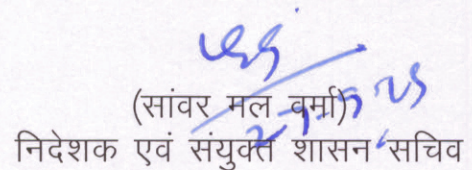 (सांवर मल वर्मा)
निदेशक एवं संयुक्त शासन सचिव